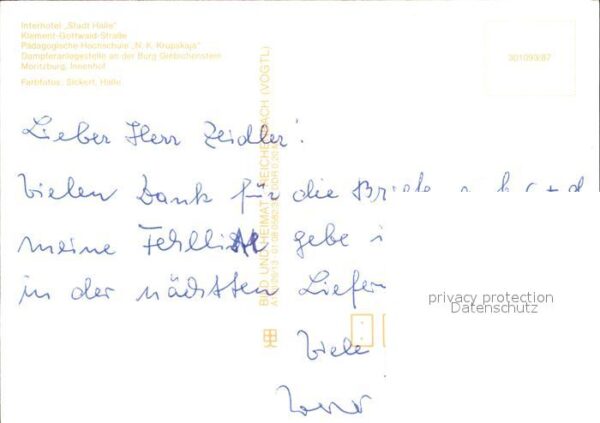 Interhotel „Stadt Halle"
Klement-Gottwald-Straße
Pädagogische Hochschule „N. K. Krupskaja"
Dampferanlegestelle an der Burg Giebichenstein
Moritzburg, Innenhof
Farbfotos: Sickert, Halle
301093/87
BILD UND HEIMAT REICHENBACH (VOGTL)
Lieber Herr Zeidler!
Vielen Dank für die Briefe
meine Fehlliste gebe
in der nächsten Liefer
privacy protection
Datenschutz
Viele